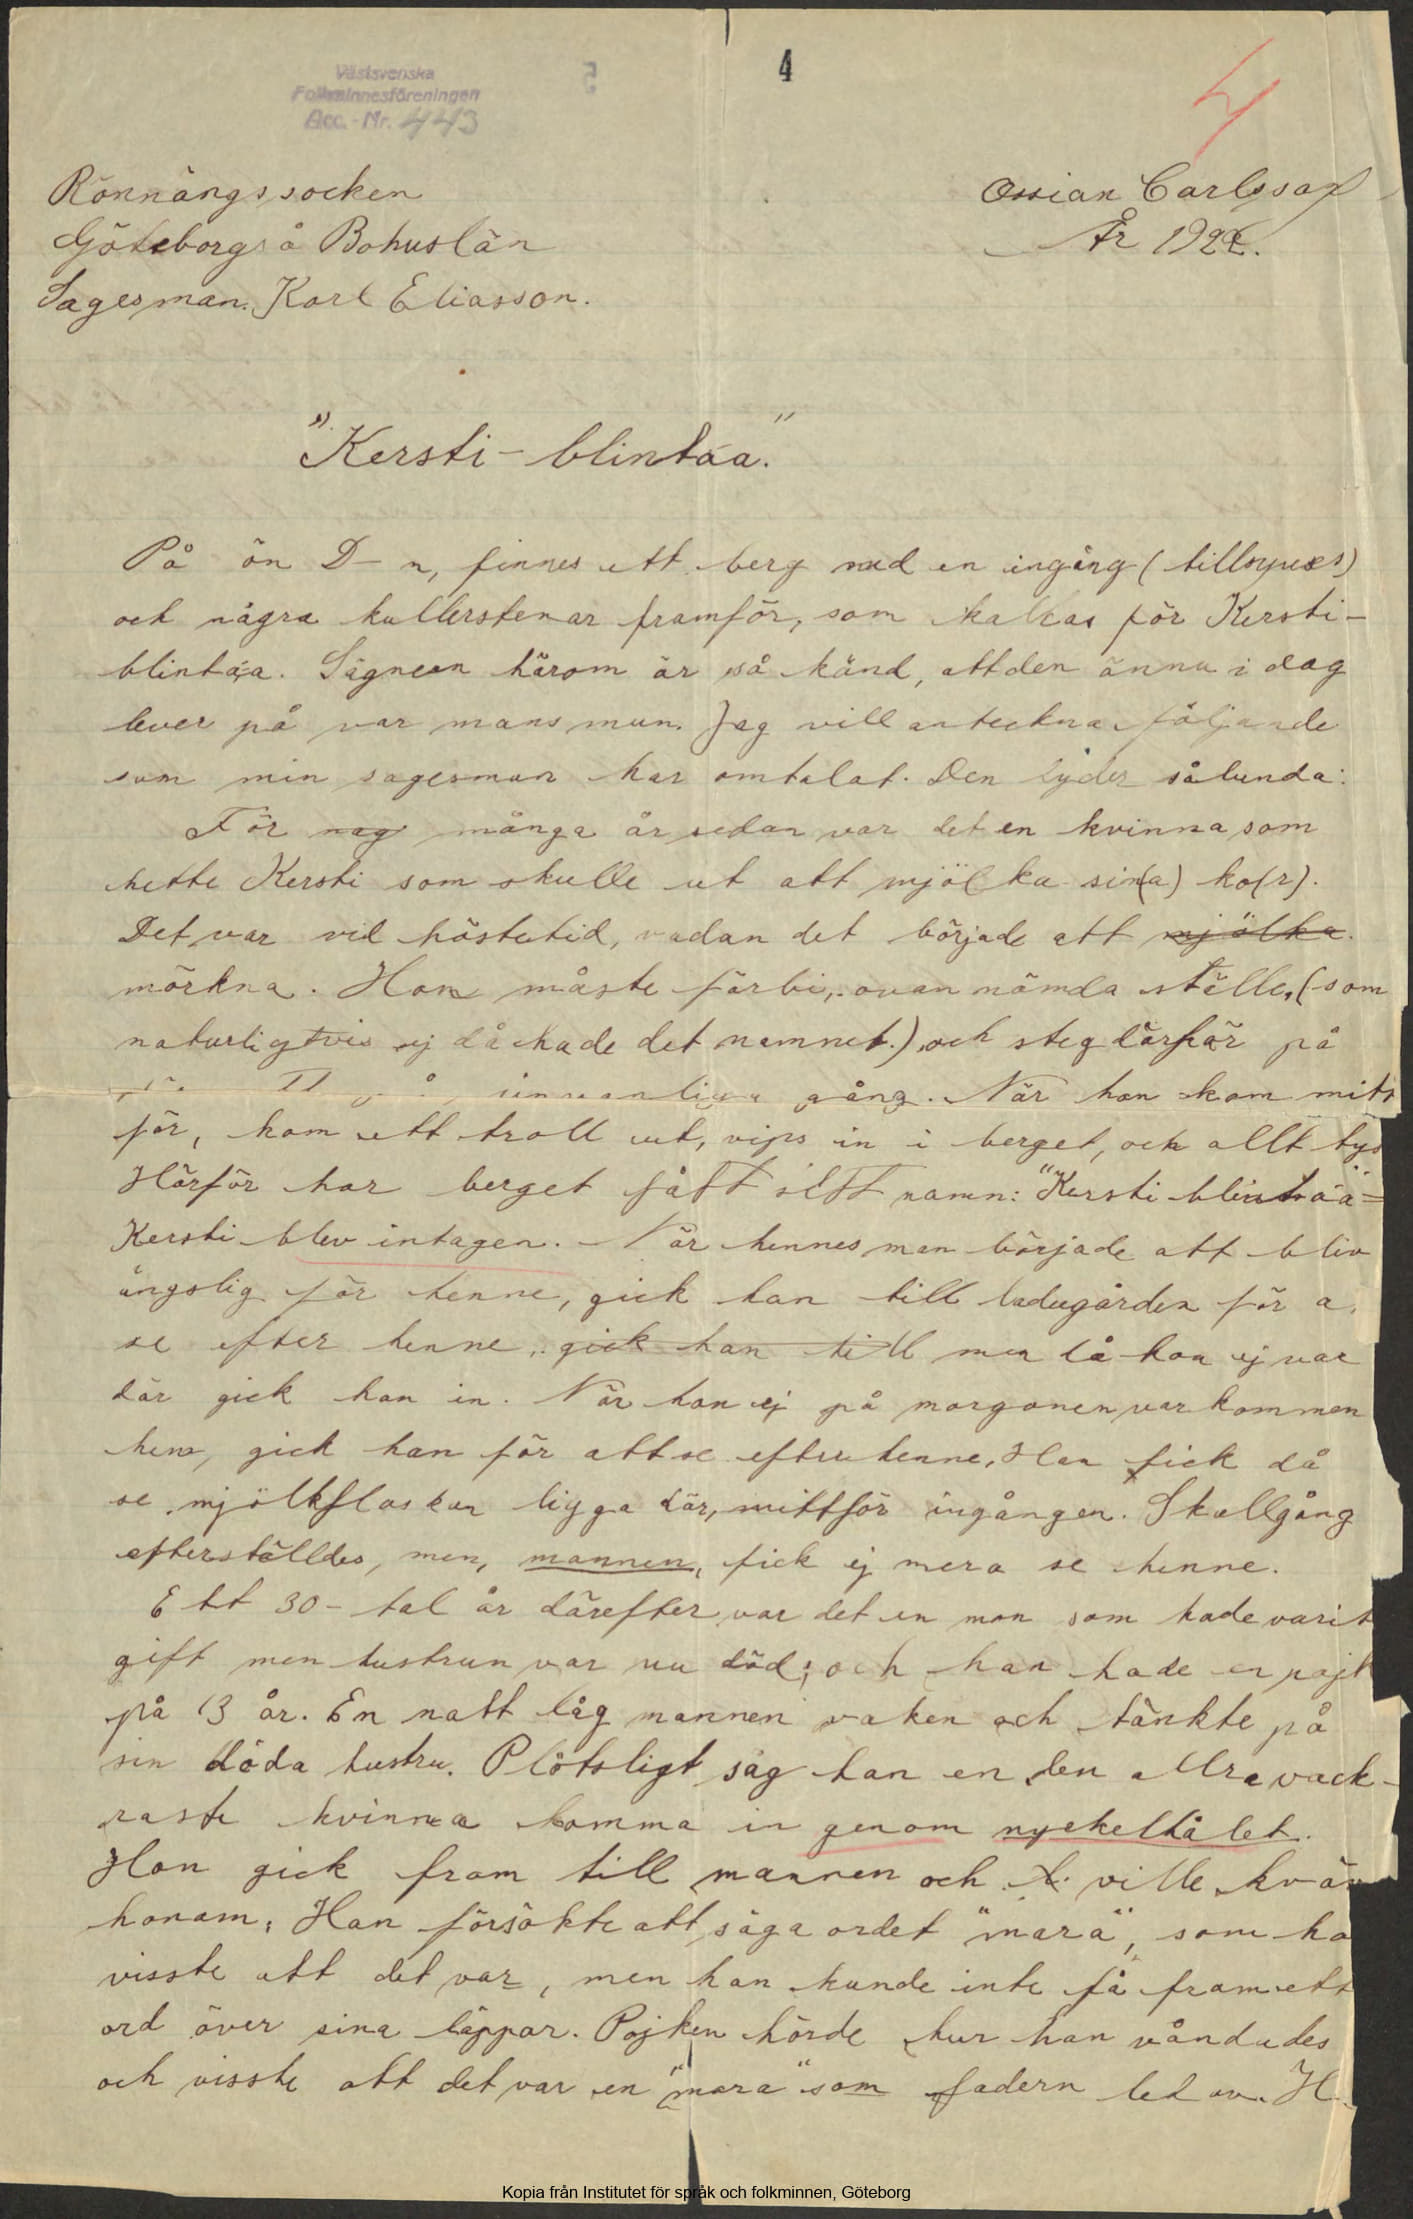 4
Västsvenska
Folkminnesföreningen
Acc.-Nr. 443
4
Rönnängs socken
Göteborgs å Bohuslän
Sagesman. Karl Eliasson.
Ossian Carlsson
År 192
"Kersti-blintáa."
På ön D-n, finnes ett berg med en ingång (tillspux)
och några kullerstenar framför, som kallas för Kersti-
blintáa. Sägnen härom är så känd, att den ännu i dag
lever på var mans mun. Jag vill anteckna följande
som min sagesman har omtalat. Den lyder sålunda:
För nag många år sedan var det en kvinna som
hette Kersti som skulle ut att mjölka sin(a) ko(r).
Det var vid höstetid, vadan det började att mjölka.
mörkna. Hon måste förbi, ovan nämda ställe, (som
naturligtvis ej då hade det namnet.) och steg därför på
gång. När hon kom mitt
för, kom ett troll ut, vips in i berget, och allt tys
Härför har berget fått sitt namn: "Kersti blintáä"=
Kersti blev intagen. När hennes man började att bliv
ängslig för henne, gick han till ladugården för a
se efter henne, gick han till men då hon ej var
där gick han in. När hon ej på morgonen var kommen
hem, gick han för att se efter henne. Han fick då
se mjölkflaskan ligga där, mittför ingången. Skallgång
efterställdes, men, mannen, fick ej mera se henne.
Ett 30-tal år därefter var det en man som hade varit
gift men hustrun var nu död; och han hade en pojk
på 13 år. En natt låg mannen vaken och tänkte på
sin döda hustru. Plötsligt såg han en den allra vack-
raste kvinna komma in genom nyckelhålet.
Hon gick fram till mannen och ville kväv
honom. Han försökte att säga ordet "mara", som ha
visste att det var, men han kunde inte få fram ett
ord över sina läppar. Pojken hörde hur han våndades
och visste att det var en "mara" som fadern led av. H
Kopia från Institutet för språk och folkminnen, Göteborg